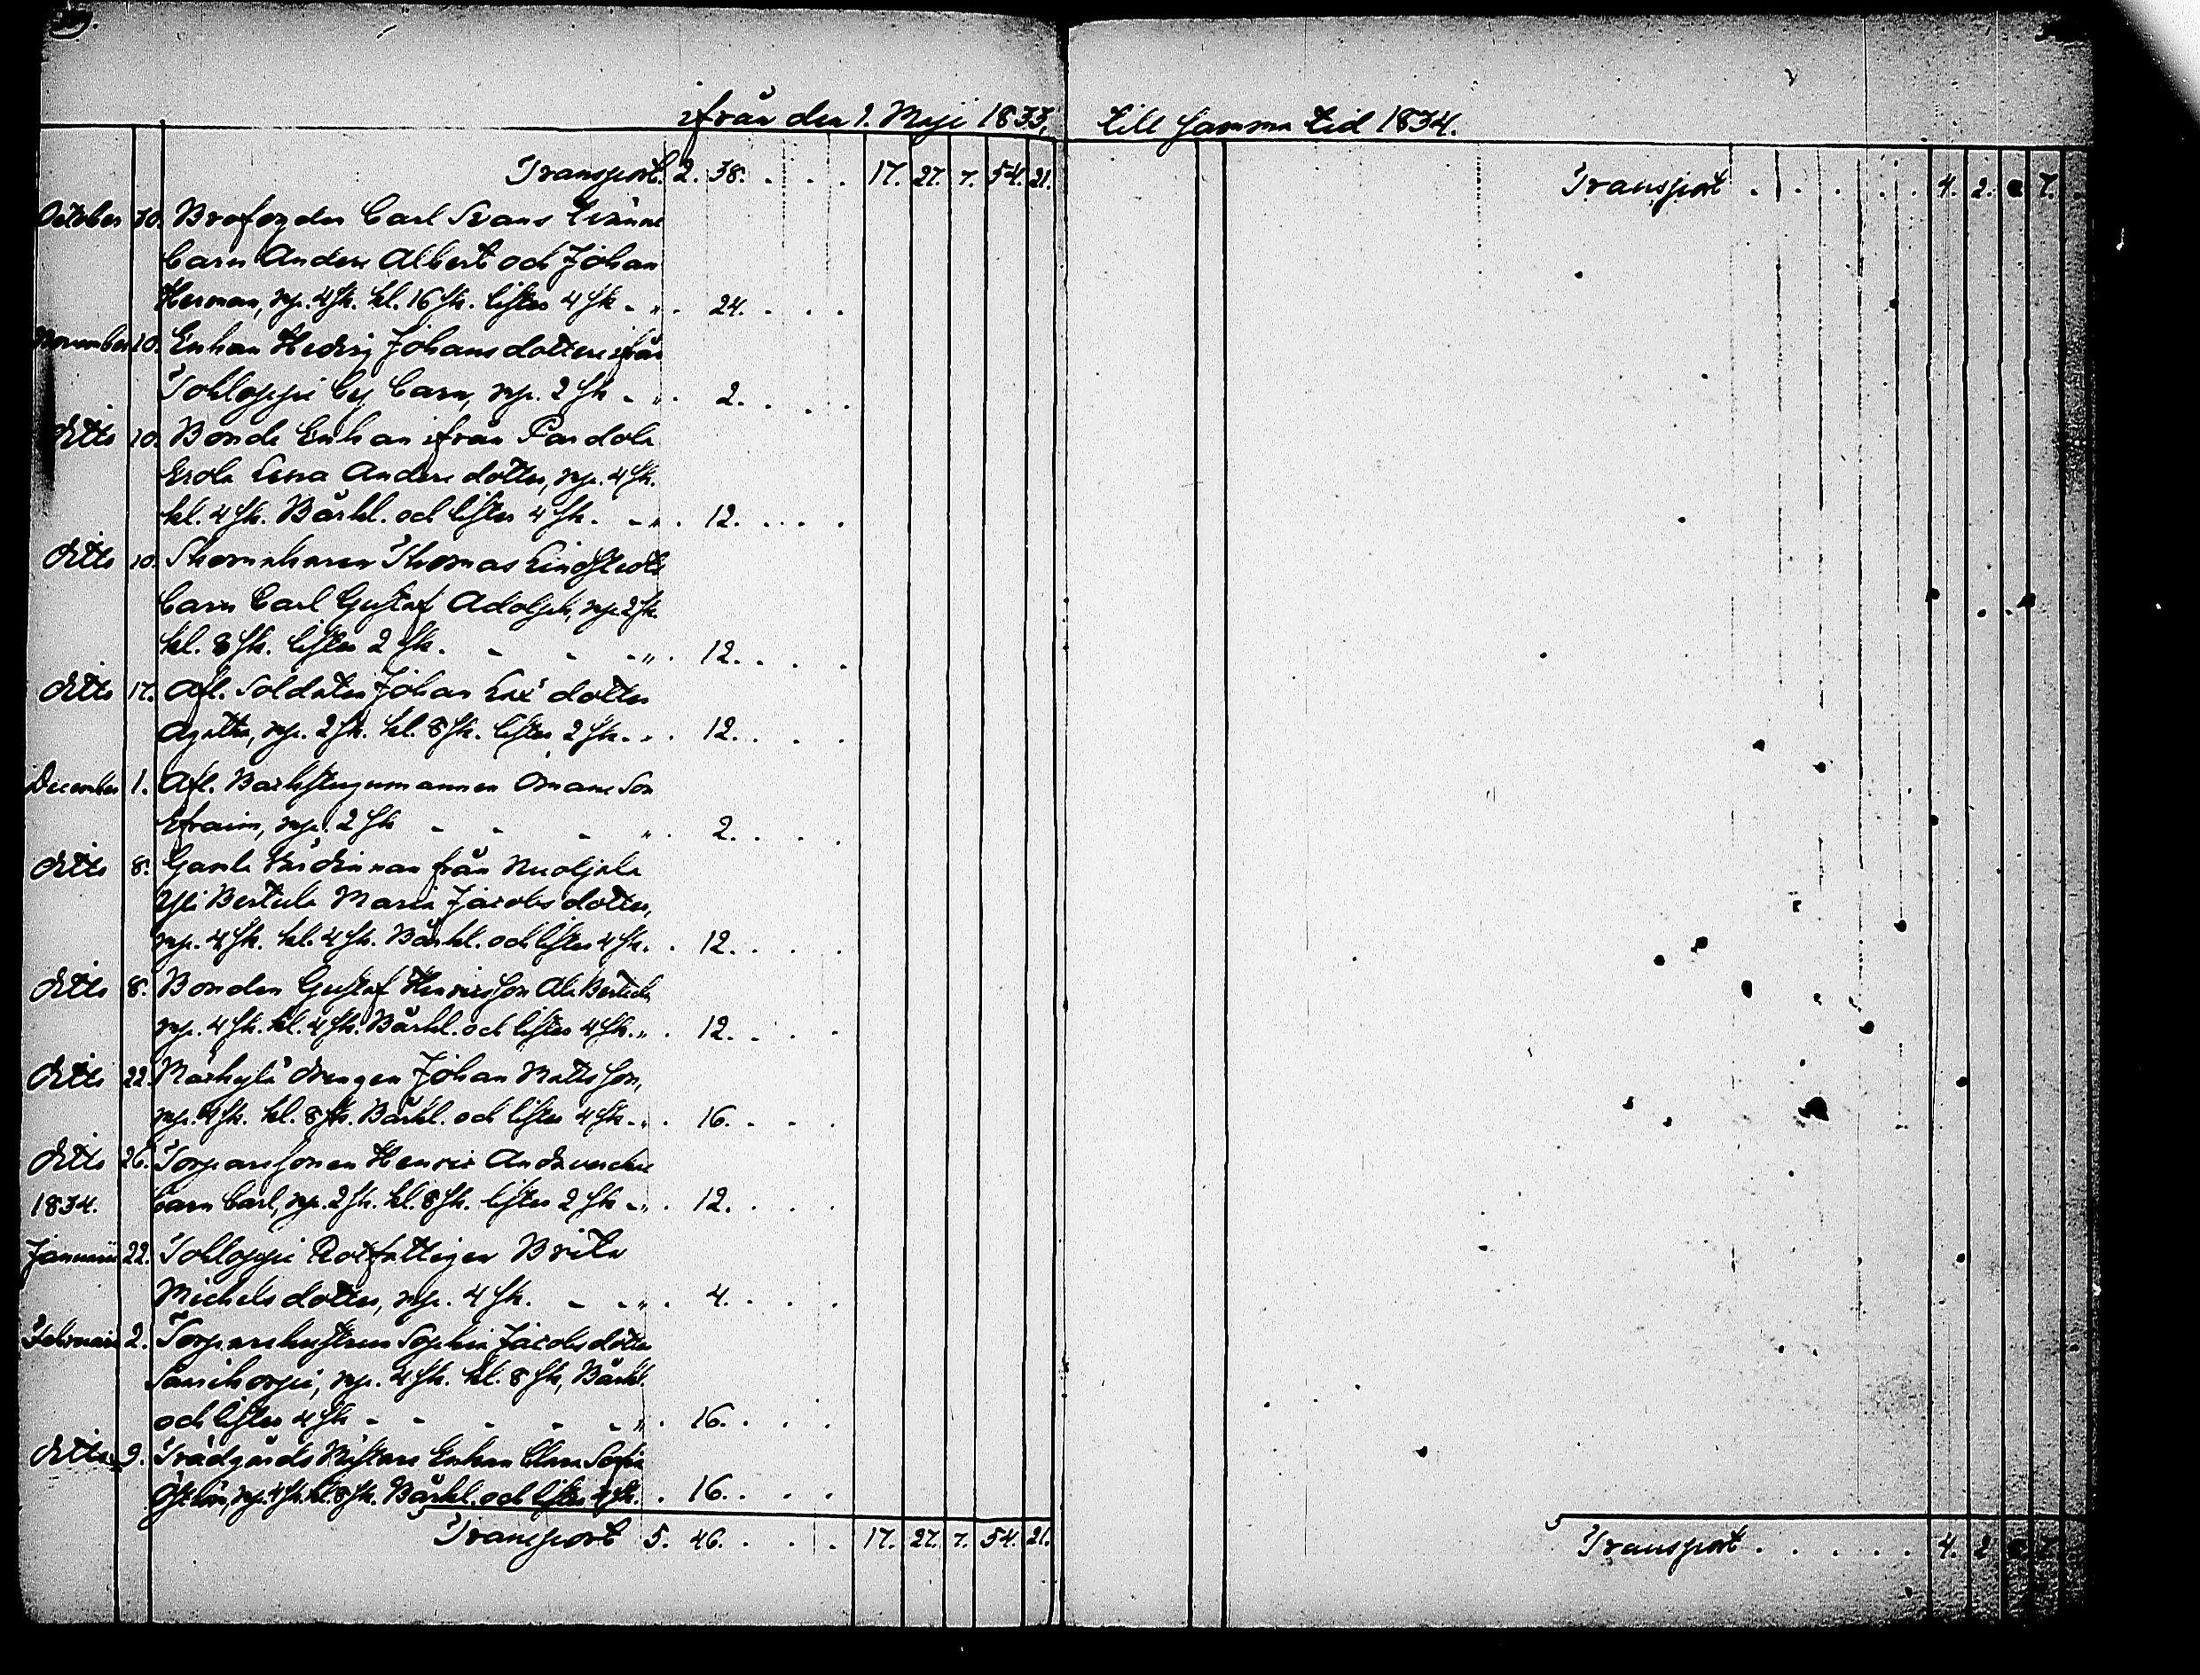 ifrån den 1. Maji 1833, till samma tid 1834.
Transport. 2. 38. . . . 17. 27. 7. 54. 21.
Transport . . . . . . 4. 2. 7.
October 30. Brofogden Carl Evans
barn Anders Albert och Johan
Herman, mp. 4 sk. kl. 16 sk. lister 4 sk - " . 24. . . .
November 10. Enkan Hedvig Johansdotters ifrån
Tokloppi by barn, mp. 2 sk - " . 2. . . .
ditto 10. Bonde Enkan ifrån Pardola
Erola Lena Anders dotter, mp. 4 sk.
kl. 4 sk. Bårkl. och lister 4 sk. - " . 12. . . .
ditto 10. Thomas Lindstedts
barn Carl Gustaf Adolph, mp 2 sk.
kl. 8 sk. lister 2 sk. - - - " . 12. . . .
ditto 17. Afl. Soldaten Johan dotter
Agatha, mp. 2 sk. kl. 8 sk. lister 2 sk. - . 12. . . .
December 1. Afl. Backstugumannen Son
Efraim, mp. 2 sk - - - " . 2. . . .
ditto 8. Gamla från Nuoljala
Yli Bertula Maria Jacobs dotter,
mp. 4 sk. kl. 4 sk. Bårkl. och lister 4 sk. . 12. . . .
ditto 8. Bonden Gustaf Henricsson Ala Bertula
mp. 4 sk. kl. 4 sk. Bårkl. och lister 4 sk. " . 12. . . .
ditto 22. drengen Johan Matsson,
mp. 4 sk. kl. 8 sk. Bårkl. och lister 4 sk - " . 16. . . .
ditto 26. Torparesonen Henric
1834. barn Carl, mp. 2 sk. kl. 8 sk. lister 2 sk - " . 12. . . .
Januarii 22. Tokloppi Rotfattigen Brita
Michels dotter, mp. 4 sk. - - " . 4. . . .
Februarii 2. Torparehustrun Sophia Jacobsdotter
mp. 4 sk. kl. 8 sk, Bårkl.
och lister 4 sk - - - - - " . 16. . . .
ditto 9. Trädgårds Mästare Enkan Clara Sofia
mp. 4 sk. kl. 8 sk. Bårkl. och lister 4 sk. . 16. . . .
Transport 5. 46. . . . 17. 27. 7. 54. 21.
Transport . . . . . . 4. 2